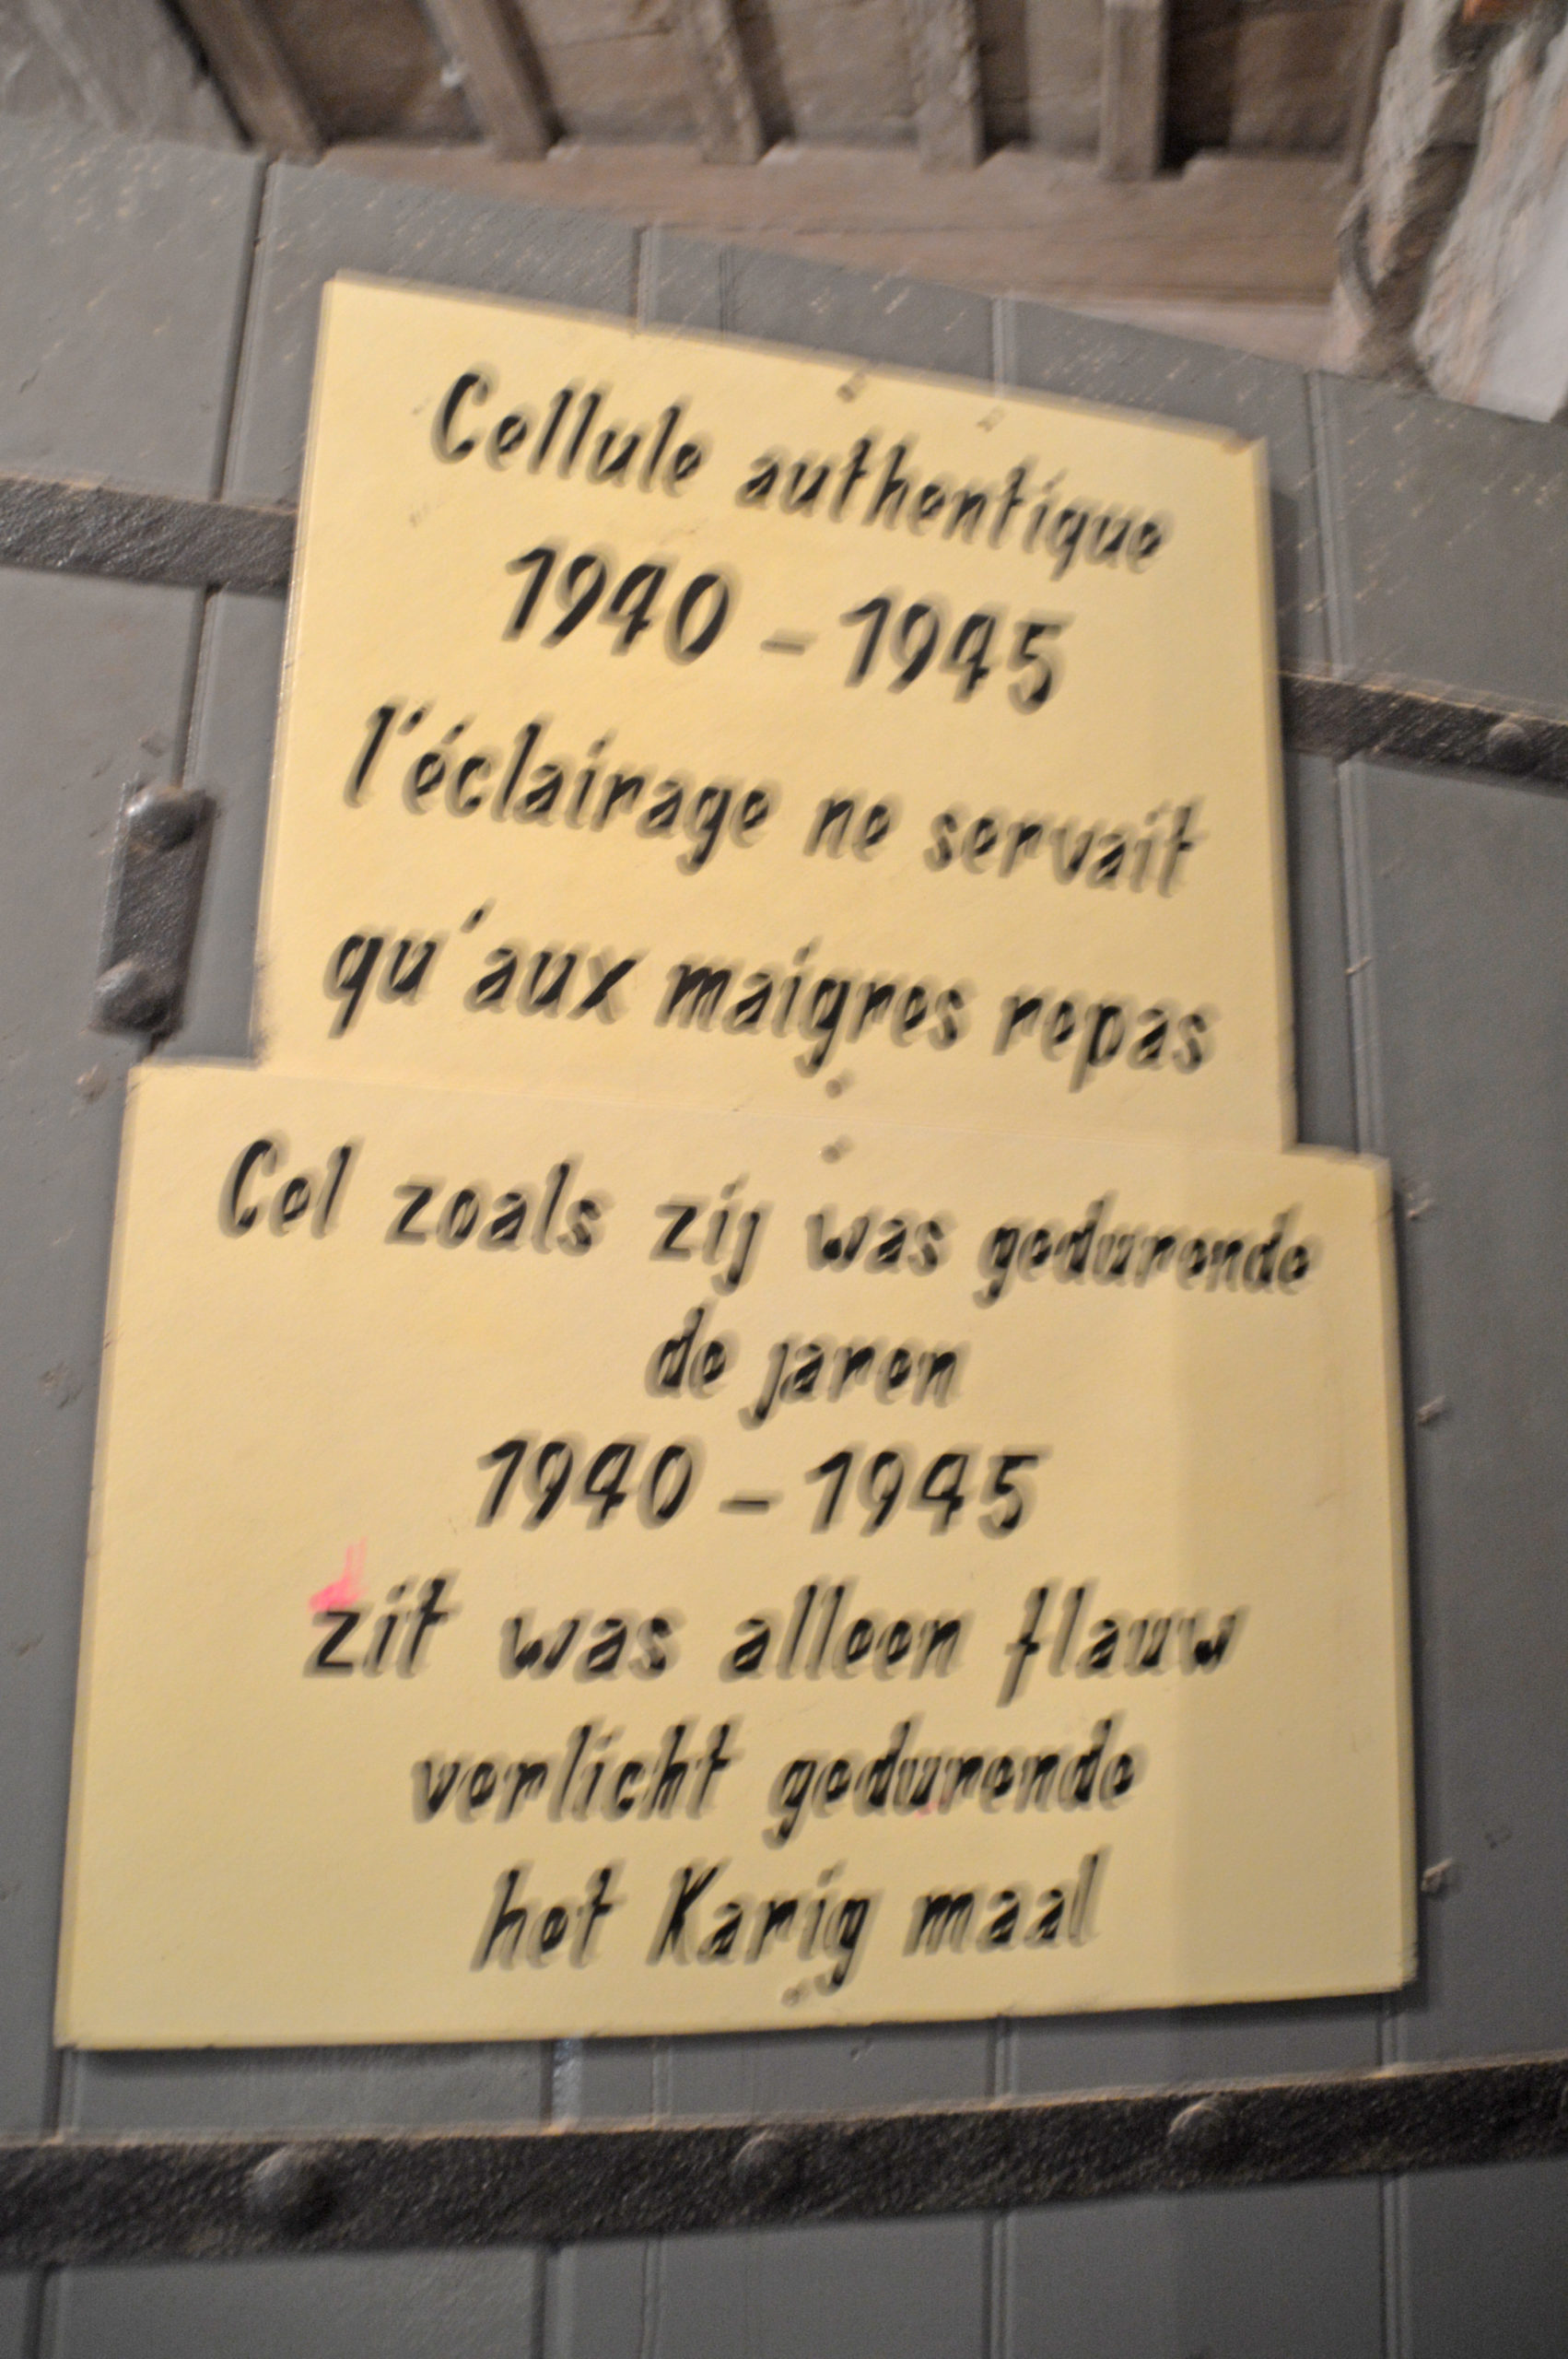 Cellule authentique
1940 - 1945
l'éclairage ne servait
qu'aux maigres repas
Cel zoals zij was gedurende
de jaren
1940 - 1945
zit was alleen flauw
verlicht gedurende
het Karig maal